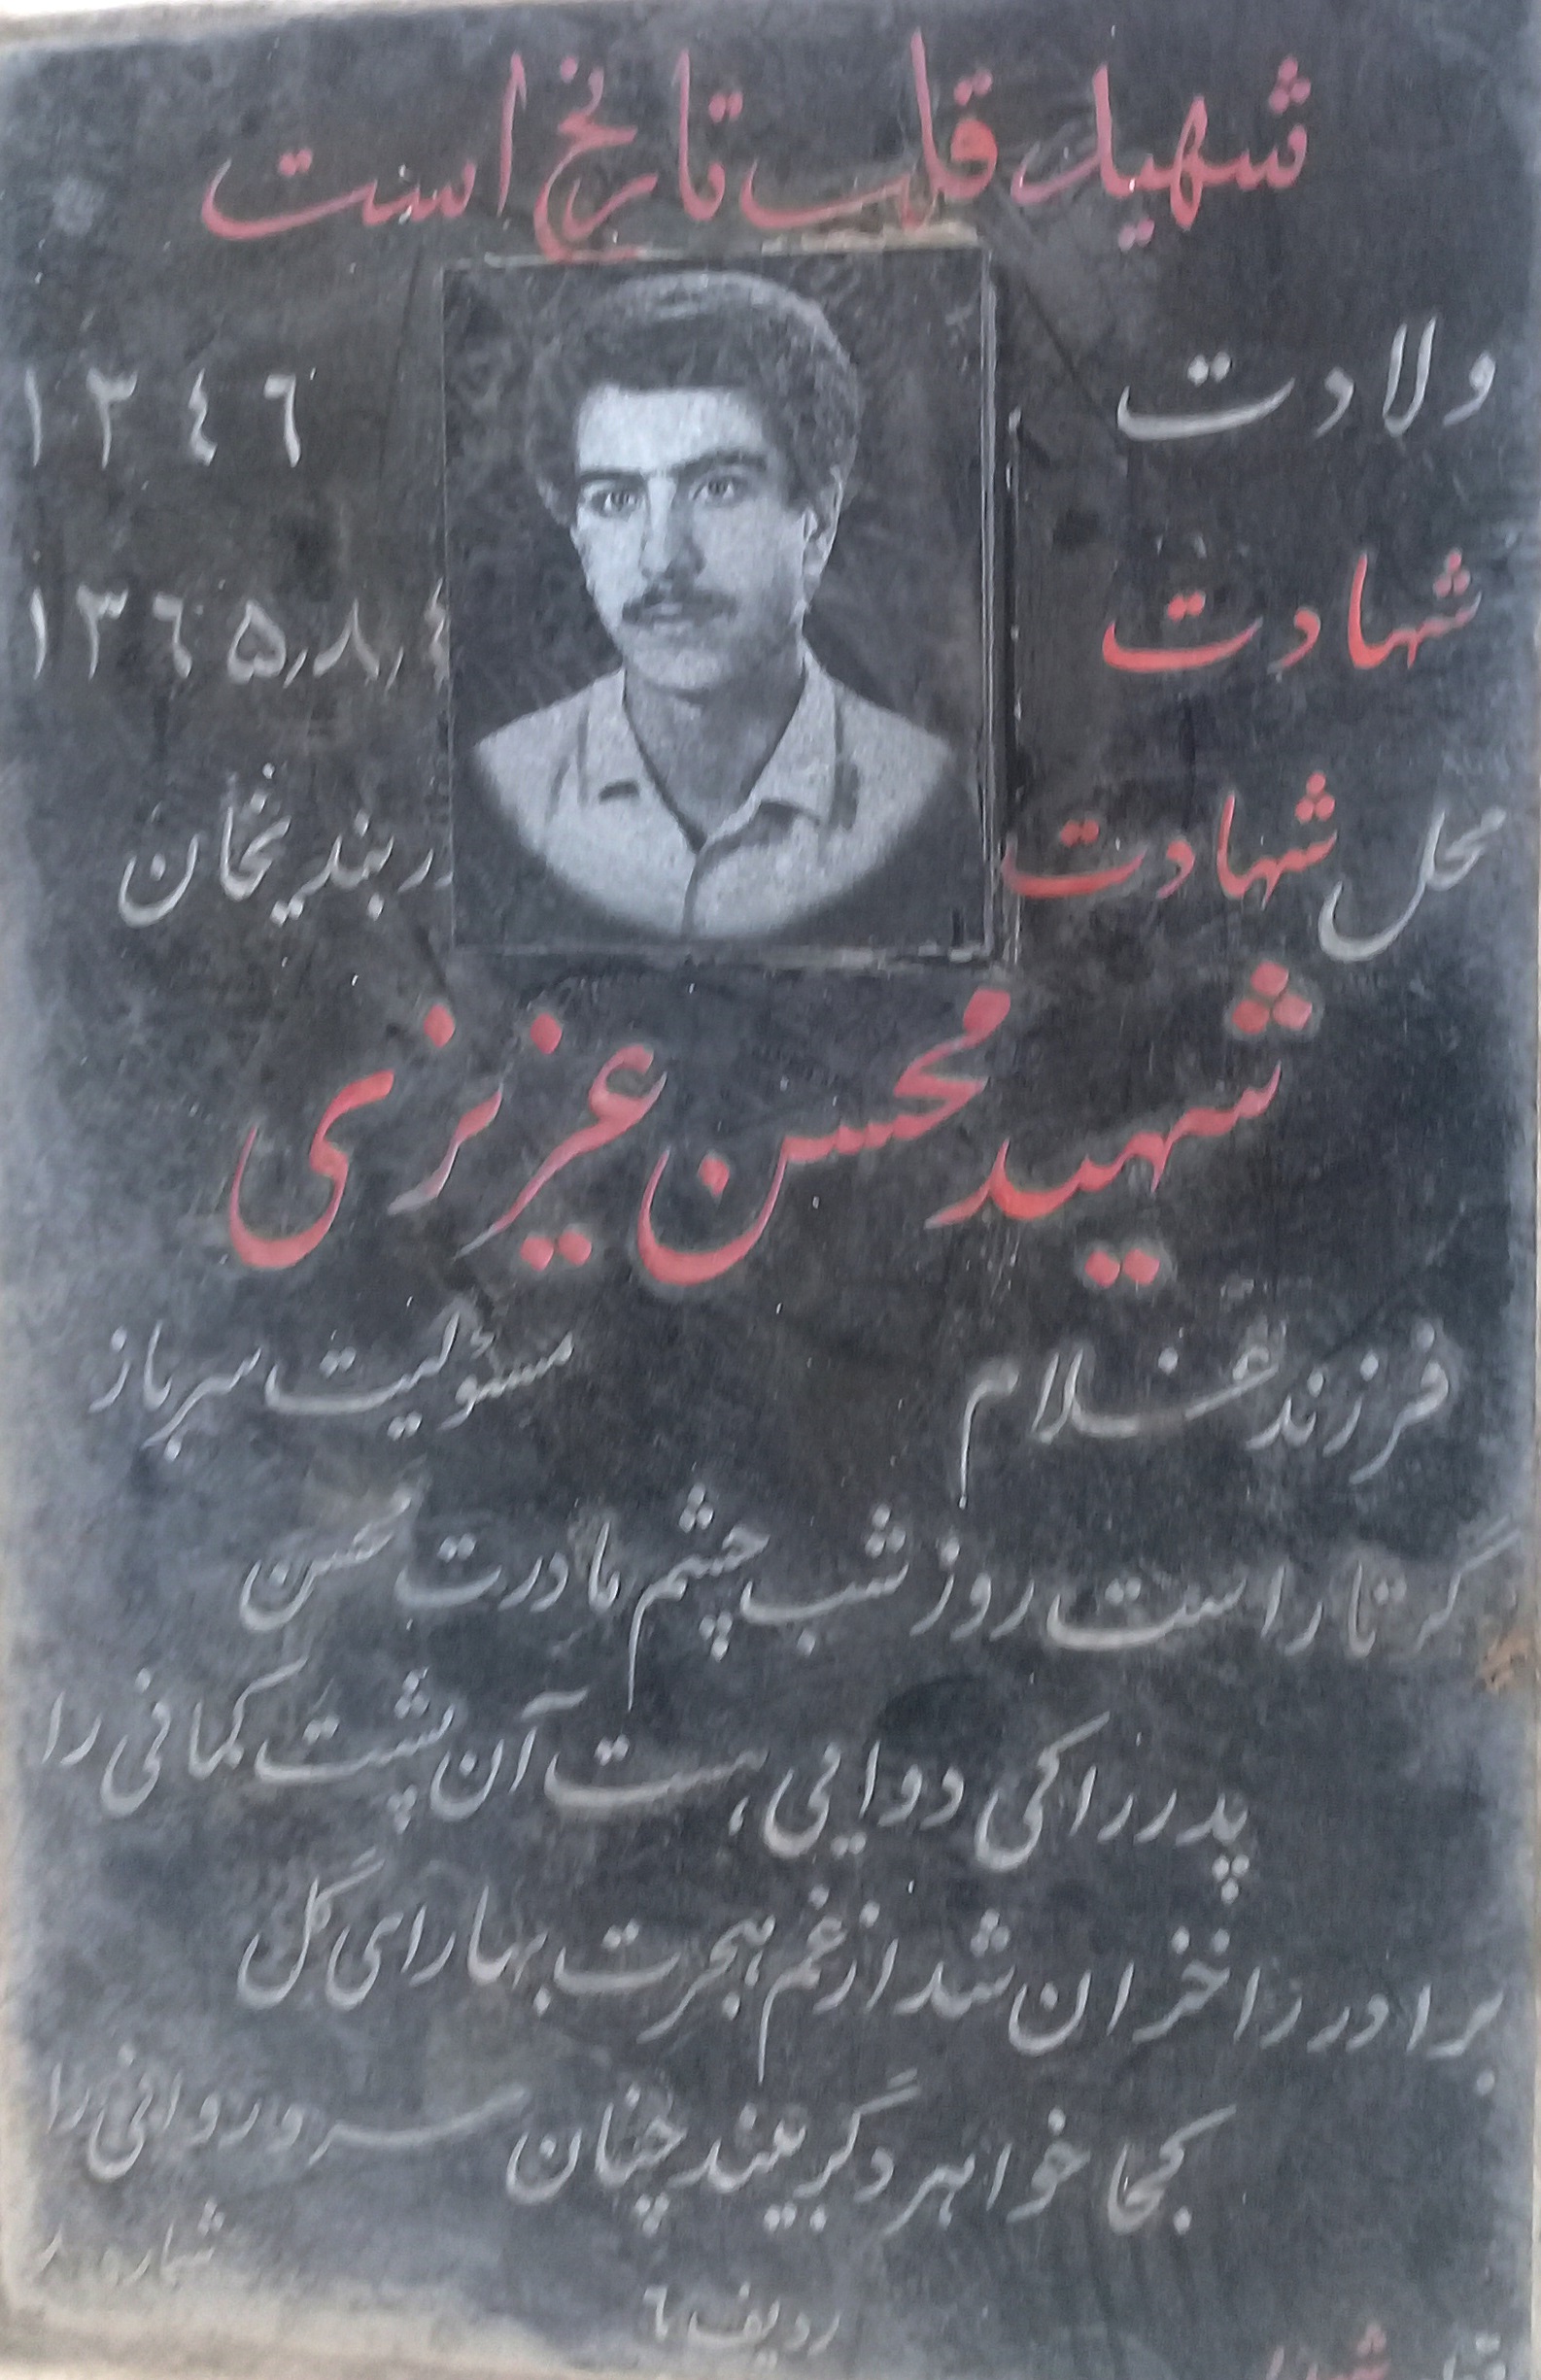 شهید قلب تاریخ است
ولادت ۱۳۴۶
شهادت ۱۳۶۵٫۸٫۴
محل شهادت دربندیخان
شهید محسن عزیزی
فرزند غلام مسئولیت سرباز
گر تار است روز شب چشم مادرت محسن
پدر را کی دوایی هست آن پشت کمانی را
برادر را خزان شد از غم هجرت بهار ای گل
کجا خواهر دگر بیند چنان سرو روانی را
شماره ۸
ردیف ۶